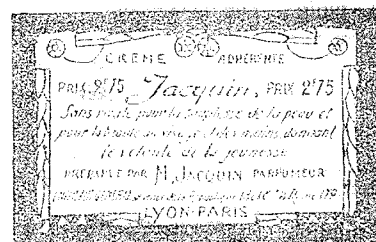 CRÈME ADHÉRENTE
PRIX 2F75 Jacquin PRIX 2F75
Sans rivale pour la souplesse de la peau et
pour la beauté du visage et des mains, donnant
le velouté de la jeunesse
PRÉPARÉE PAR M. JACQUIN PARFUMEUR
LYON-PARIS